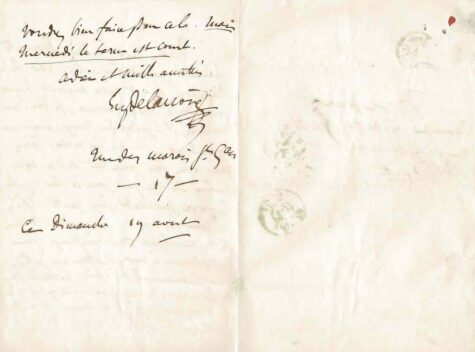 voudrez bien faire pour cela. mais
mercredi, le terme est court.
adieu et mille amitiés
EugDelacroix
rue des marais St Gen
— 17 —
Ce Dimanche 19 aout